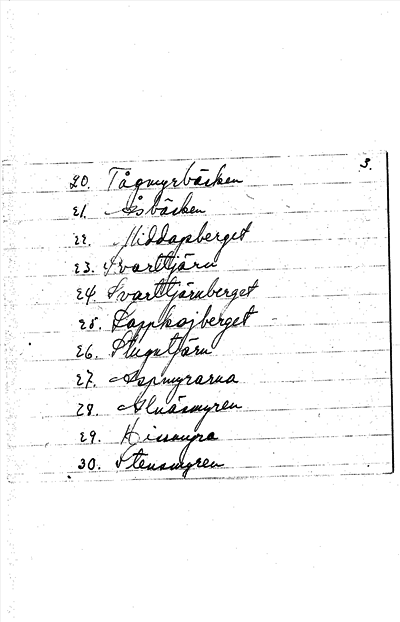 3.
20. Tågmyrbäcken
21. Åsbäcken
22. Middagsberget
23. Svarttjärn
24. Svarttjärnberget
25. Lappkojberget
26. Stugutjärn
27. Aspmyrarna
28. Alnäsmyren
29.
30. Stensmyren